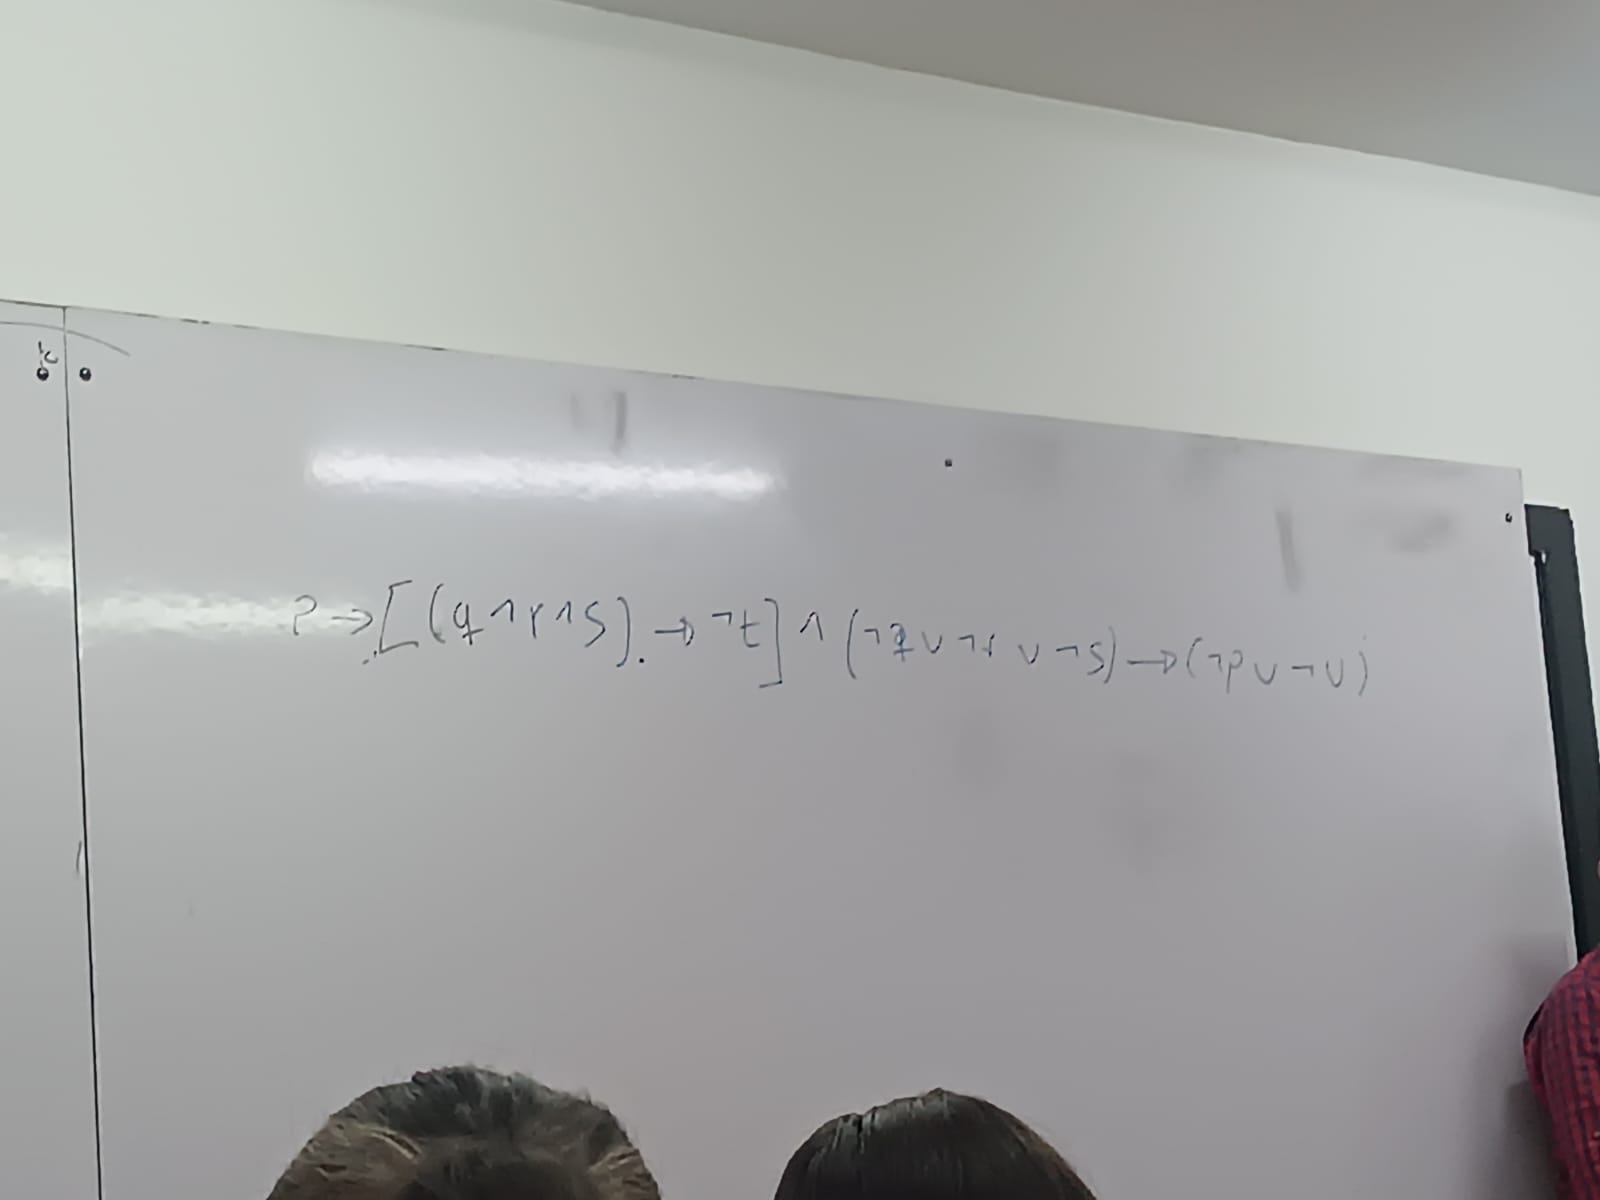 P→[(q∧r∧s)→¬t]∧(¬q∨¬r∨¬s)→(¬p∨¬u)